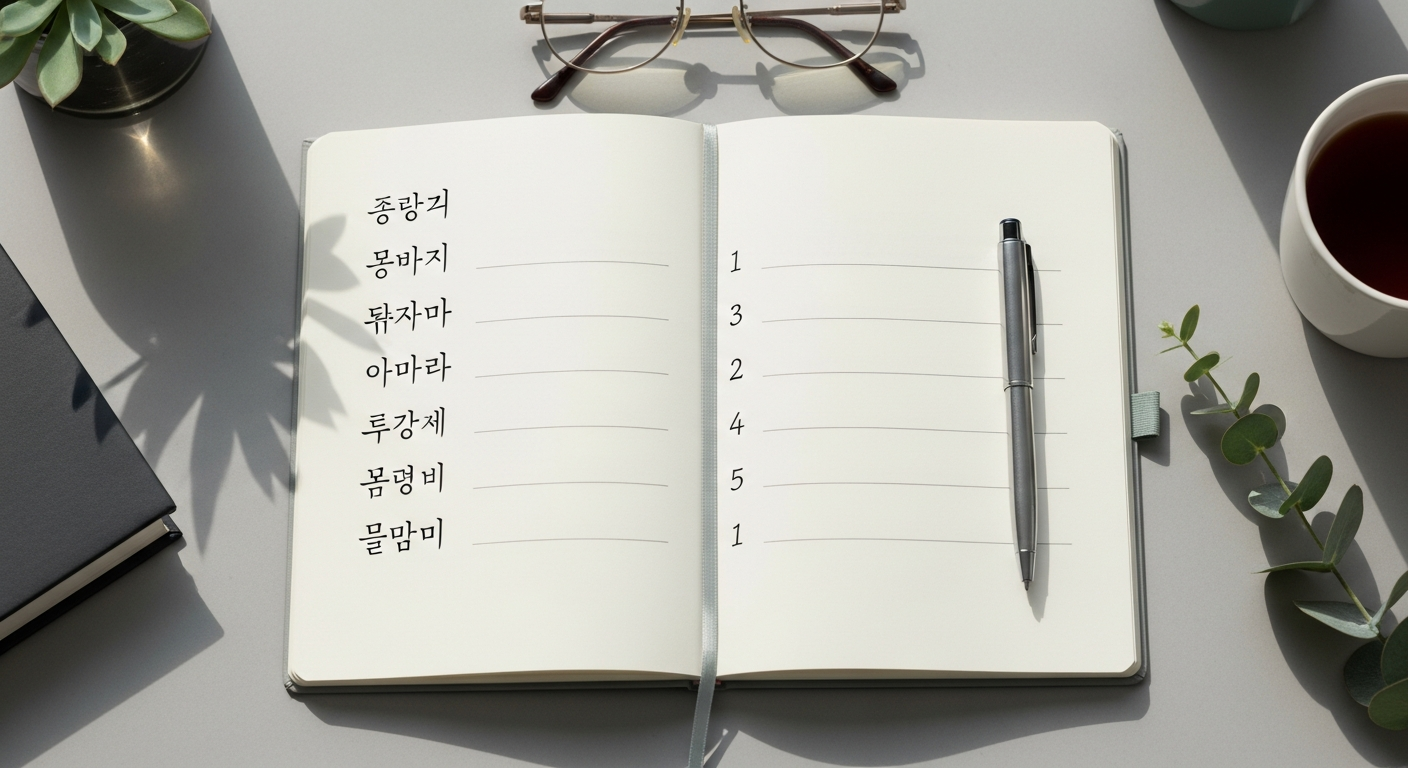 종랑긔
몽바지
아마라
루강제
몸령비
믈맘미
1
3
2
4
5
1